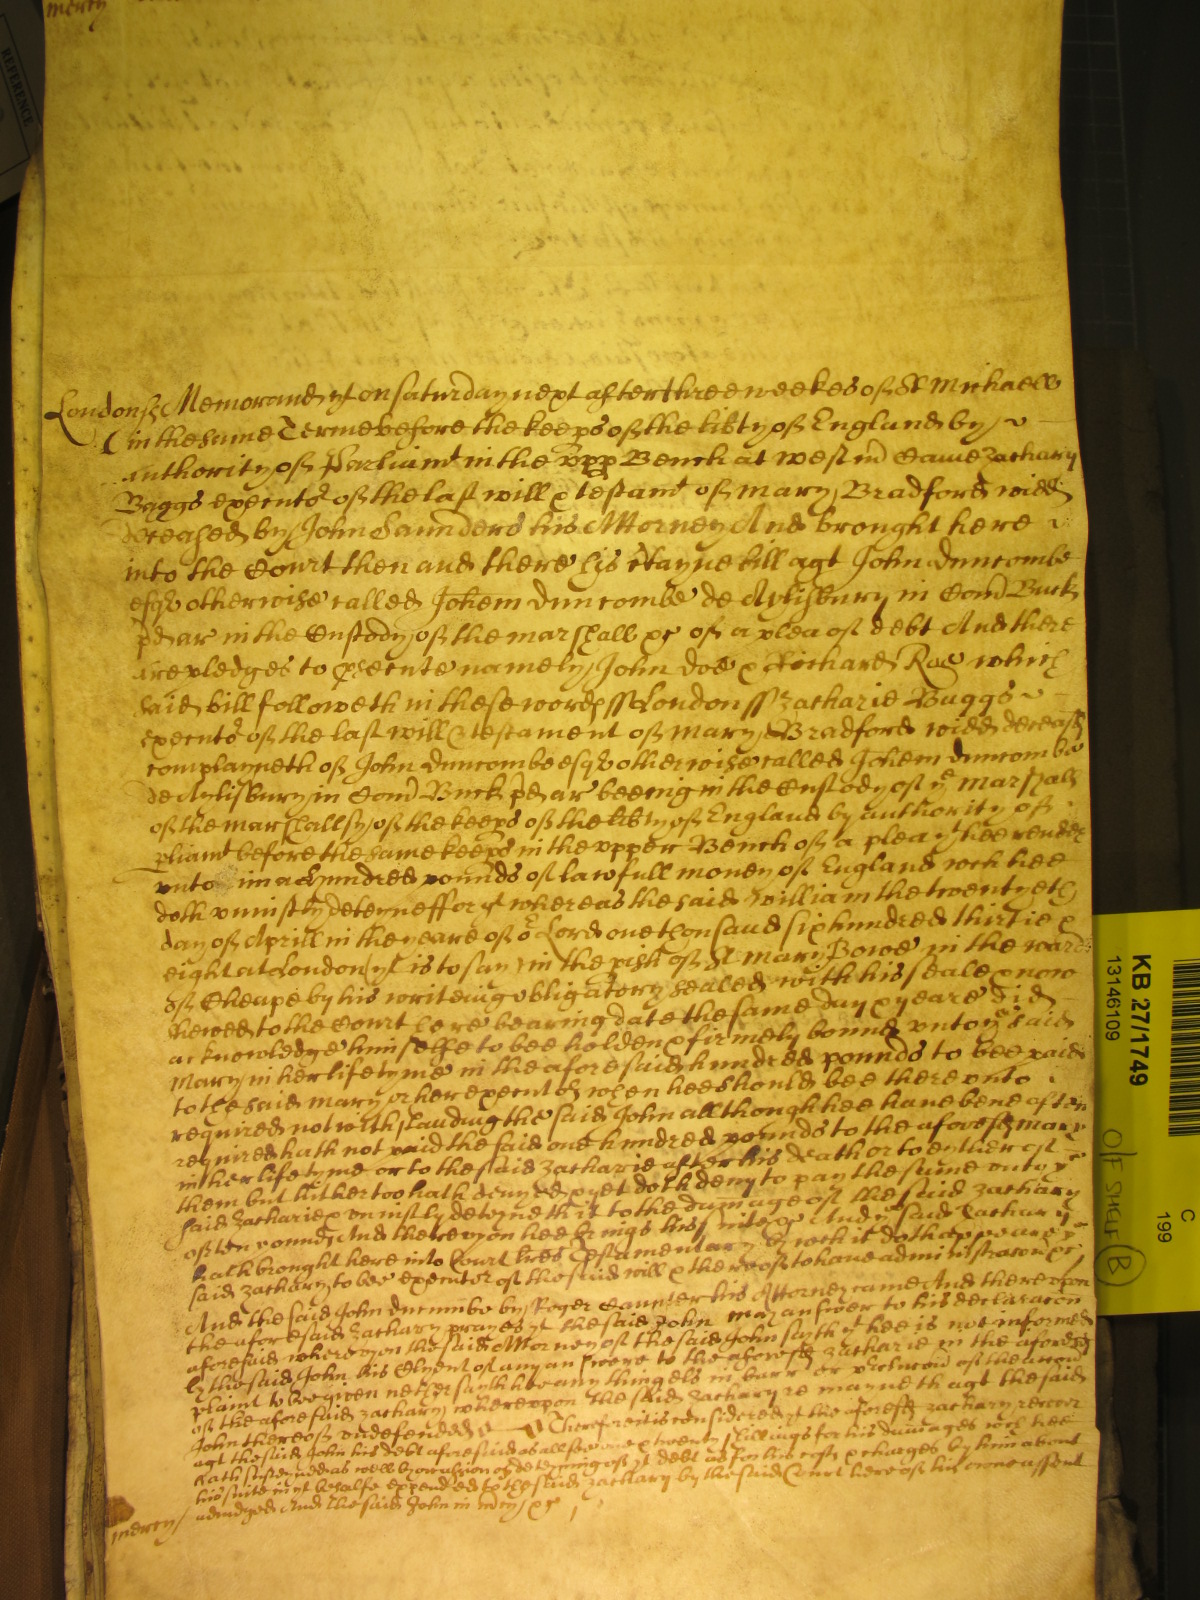 mercy
REFERENCE
London ss Memorand yt on Saturday next after three weekes of St Michaell
in the same Terme before the keeps of the libty of England by
authority of Parliamt in the vpp Bench at westm Came Zachary
Buggs executor of the last will & testamt of Mary Bradford widd
deceased by John Saunders his Attorney And brought here
into the Court then and there his ctayne bill agt John Duncombe
esqr otherwise called Johem Duncombe de Aylisbury in Com Buck
ar in the Custody of the marshall &c of a plea of debt And there
are pledges to psecute namely John Doe & Richard Roe which
said bill followeth in these words ss London ss Zacharie Buggs
executor of the last will & testament of Mary Bradford widd deceased
complayneth of John Duncombe esqr otherwise called Johem Duncombe
de Aylisbury in Com Buck ar beeing in the Custody of ye Marshall
of the marshallsy of the keeps of the libty of England by authority of
pliamt before the same keeps in the vpper Bench of a plea yt hee render
vnto him a hundred pounds of lawfull money of England wch hee
doth vniustly deteyne ffor yt whereas the said william the twentyeth
day of Aprill in the yeare of or Lord one thousand six hundred thirtie &
eight at London yt is to say in the pish of St Mary Bowe in the ward
of Cheape by his writeing obligatory sealed with his seale & now
shewed to the Court here bearing date the same day & yeare did
acknowledge himselfe to bee holden & firmely bound vnto ye said
Mary in her life tyme in the aforesaid hundred pounds to bee paid
to the said Mary or her executors when hee should bee therevnto
required notwithstanding the said John allthough hee haue bene often
required hath not paid the said one hundred pounds to the aforesd Mary
in her life tyme or to the said Zacharie after his death or to eyther of
them but hithertoo hath denyed & yet doth deny to pay the same vnto ye
said Zacharie & vniustly deteyneth it to the damage of the said Zachary
of ten pounds And therevpon hee brings his suite &c And ye said Zachary
hath brought here into Court lres Testamentary by wch it doth appeare ye
said Zachary to bee executor of the said will & thereof to haue administracon &c
And the said John Duncumbe by Roger Saunter his Attorney came And therevpon
the aforesaid Zachary prayes yt the said John may answer to his declaracon
aforesaid wherevpon the said Attorney of the said John sayth yt hee is not informed
by the said John his Clyent of any answere to the aforesd Zacharie in the aforesd
plaint to bee given nether sayth hee any thing els in barr or preclucon of the accon
of the aforesaid Zachary wherevpon the said Zachary remayneth agt the said
John thereof vndefended &c Therefore it is considered yt the aforesd Zachary recover
agt the said John his debt aforesaid as allsoe one & twenty shillings for his damages wch hee
hath susteyned as well by occasion of deteyning of yt debt as for his costs & chages by him about
his suite in yt behalfe expended to the said Zachary by the said Court here of his owne assent
adiudged And the said John in mercy &c
mercy
KB 27/1749
13146109
C
199
O/F SHELF B